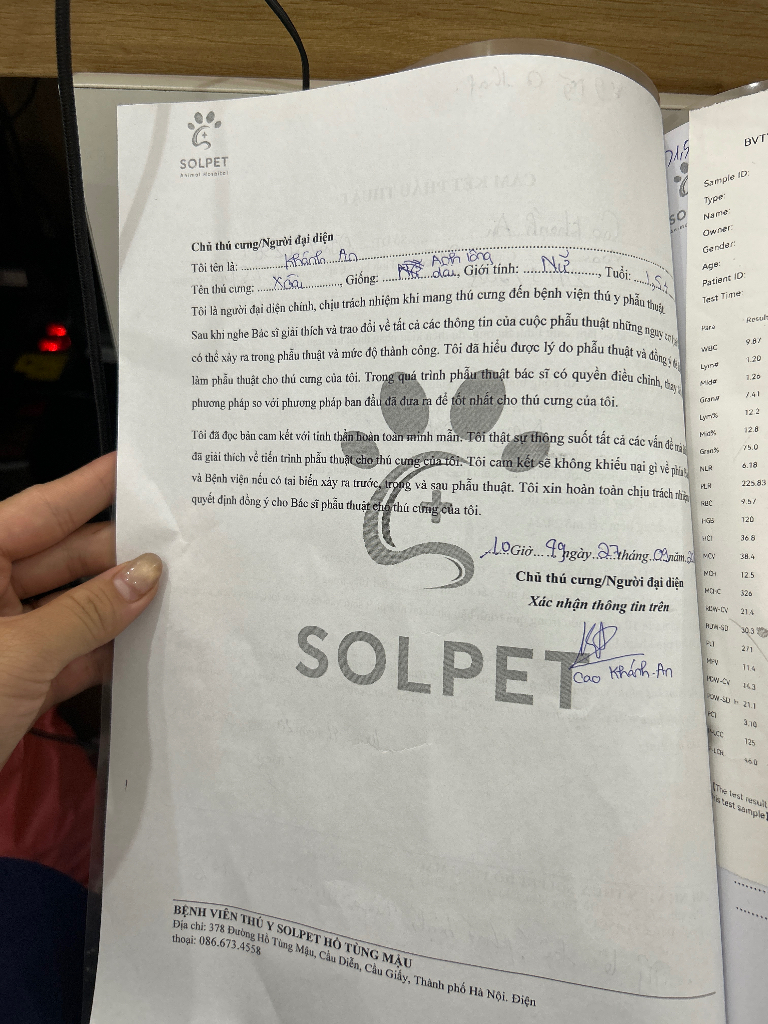 SOLPET
Animal Hospital
Chủ thú cưng/Người đại diện
Tôi tên là: Khánh An
Tên thú cưng: Xoài, Giống: Anh lông dài, Giới tính: Nữ, Tuổi: 1,5
Tôi là người đại diện chính, chịu trách nhiệm khi mang thú cưng đến bệnh viện thú y phẫu thuật.
Sau khi nghe Bác sĩ giải thích và trao đổi về tất cả các thông tin của cuộc phẫu thuật những nguy cơ
có thể xảy ra trong phẫu thuật và mức độ thành công. Tôi đã hiểu được lý do phẫu thuật và đồng ý
làm phẫu thuật cho thú cưng của tôi. Trong quá trình phẫu thuật bác sĩ có quyền điều chỉnh, thay
phương pháp so với phương pháp ban đầu đã đưa ra để tốt nhất cho thú cưng của tôi.
Tôi đã đọc bản cam kết với tinh thần hoàn toàn minh mẫn. Tôi thật sự thông suốt tất cả các vấn đề mà
đã giải thích về tiến trình phẫu thuật cho thú cưng của tôi. Tôi cam kết sẽ không khiếu nại gì về phía
và Bệnh viện nếu có tai biến xảy ra trước, trong và sau phẫu thuật. Tôi xin hoàn toàn chịu trách nhiệm
quyết định đồng ý cho Bác sĩ phẫu thuật cho thú cưng của tôi.
10 Giờ 49 ngày 27 tháng 09 năm
Chủ thú cưng/Người đại diện
Xác nhận thông tin trên
Cao Khánh An
SOLPET
BỆNH VIÊN THÚ Y SOLPET HỒ TÙNG MẬU
Địa chỉ: 378 Đường Hồ Tùng Mậu, Cầu Diễn, Cầu Giấy, Thành phố Hà Nội. Điện
thoại: 086.673.4558
SO
BVTY
Sample ID:
Type:
Name:
Owner:
Gender:
Age:
Patient ID:
Test Time:
Para Result
WBC 9.87
Lym# 1.20
Mid# 1.26
Gran# 7.41
Lym% 12.2
Mid% 12.8
Gran% 75.0
NLR 6.18
PLR 225.83
RBC 9.57
HGB 120
HCT 36.8
MCV 38.4
MCH 12.5
MCHC 326
RDW-CV 21.4
RDW-SD 30.3
PLT 271
MPV 11.4
PDW-CV
PDW-SD 21.1
PCT 3.10
PLCC 125
P-LCR 46.0
[The test result
is test sample]